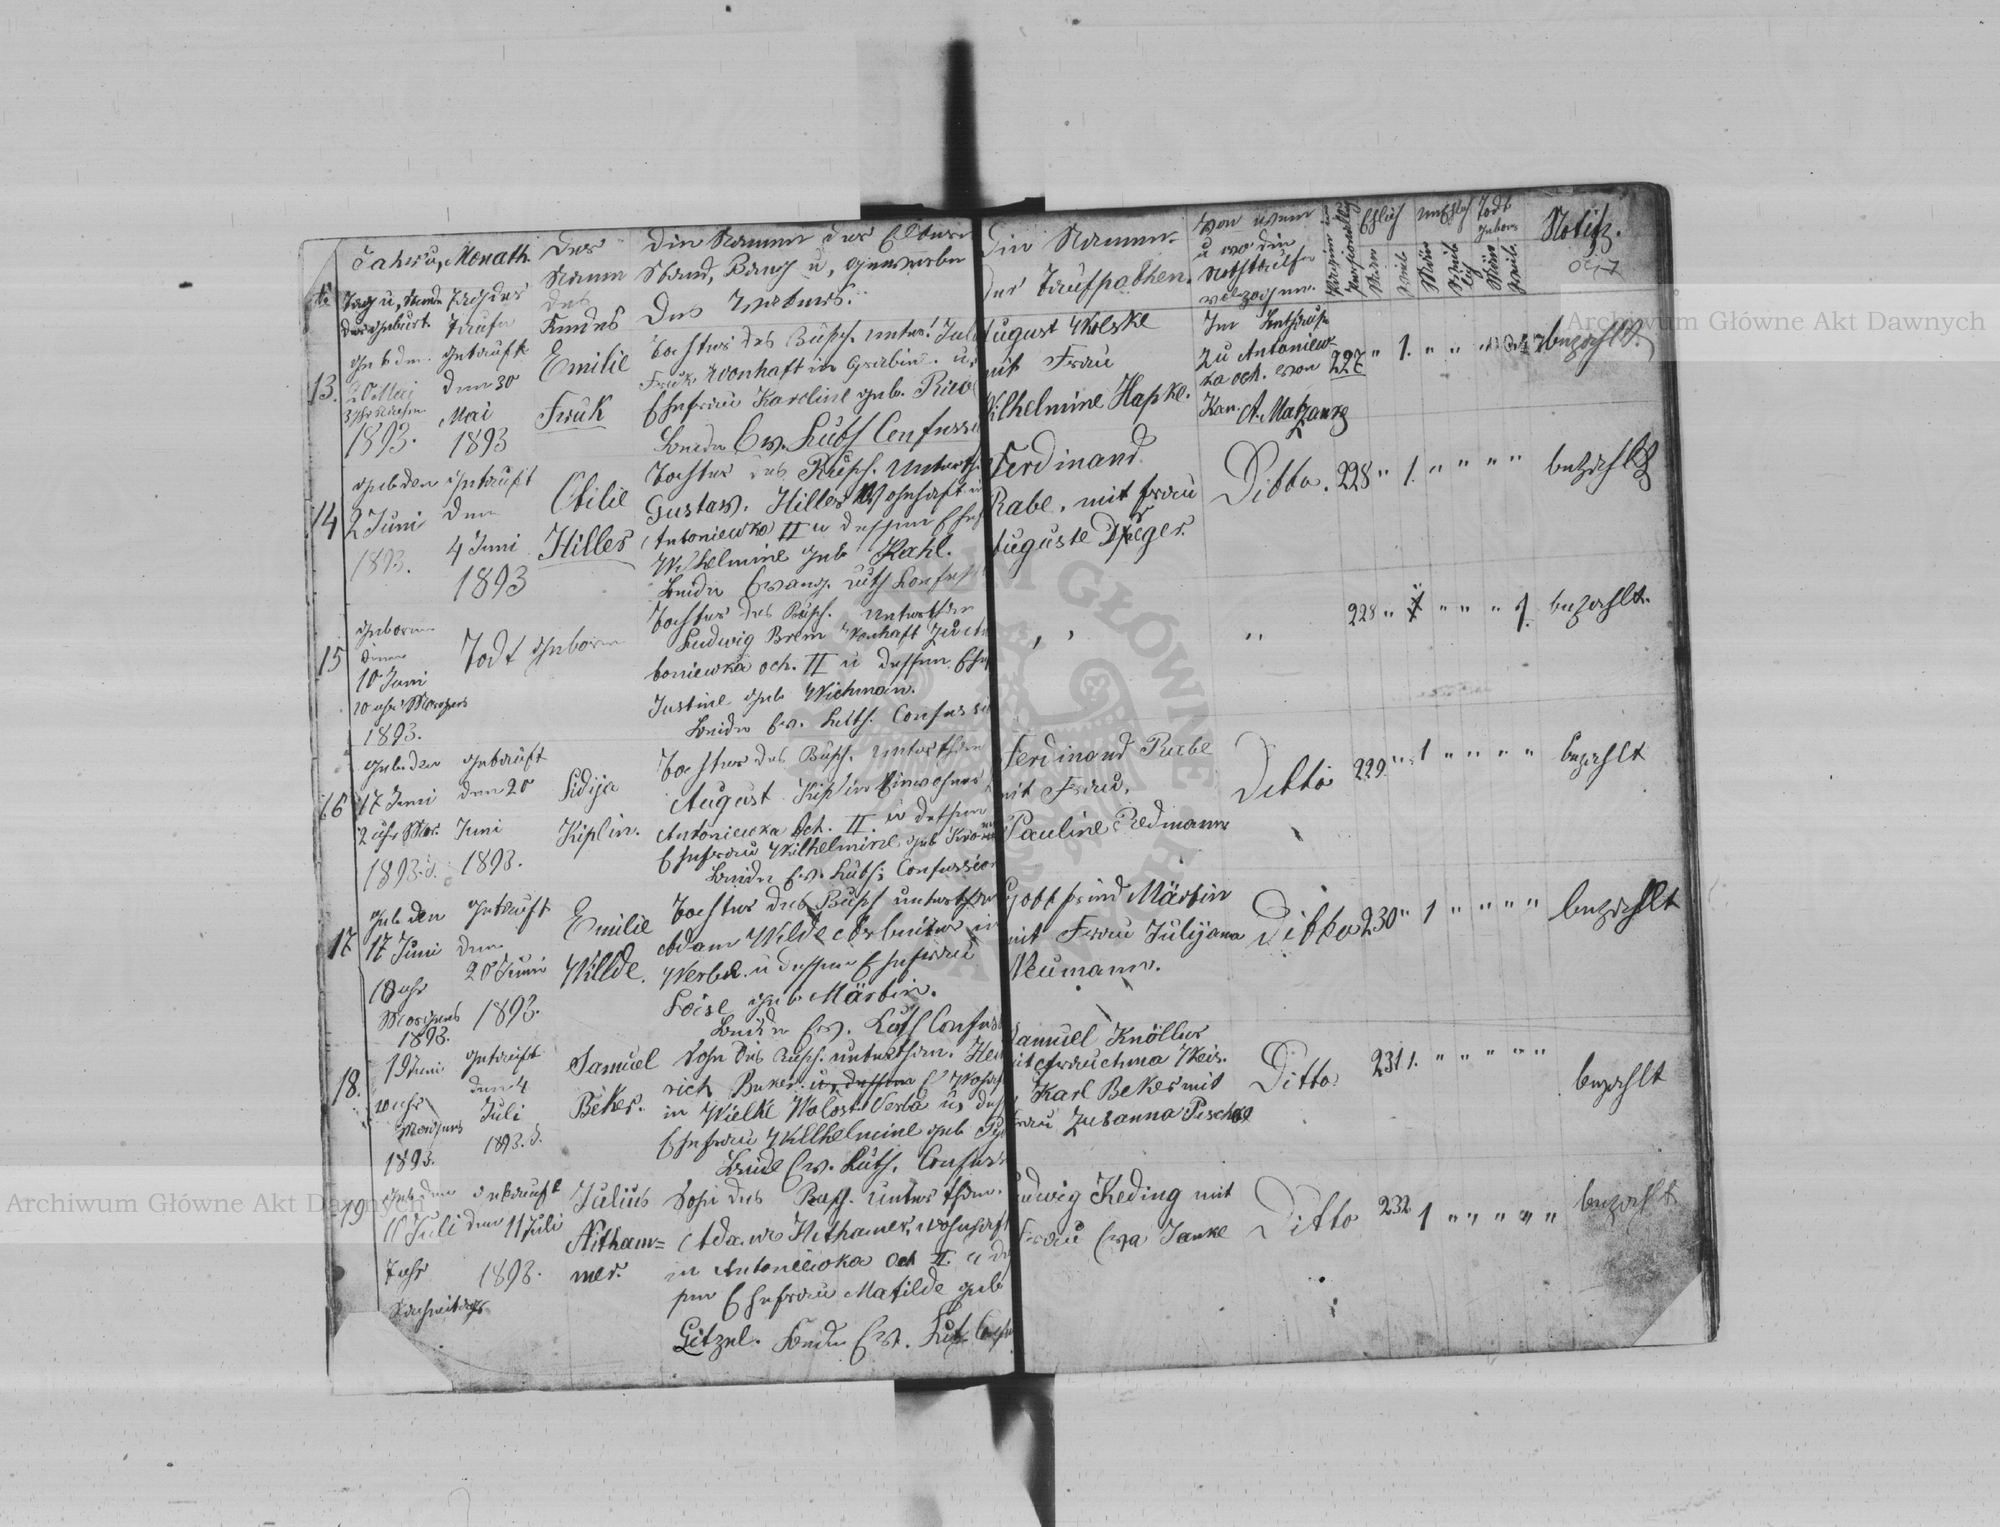 Jahr u, Monath
Tag u, Stunde
der Geburt
Tag der
Taufe
Der
Namen
des
Kindes
Die Namen der Eltern
Stand, Rang u, Gewerbe
Des Vaters.
Die Namen
der Taufpathen.
Von wem
u wo die
Nothtaufe
volzogen.
Ehlich
Unehlich
Todt
geboren
Notitz.
13.
Geb. den
20 Mai
1893.
Getauft
den 30
Mai
1893
Emilie
Fruk
Tochter des Rusch. Unter. Jul
Fruk. Wonhaft in Grabin. u.
Ehefrau Karoline geb. Riw
beide Ew. Luth Confessi
August Wolske
mit Frau
Wilhelmine Hapke.
Im Bethause
zu Antoniew-
ka och. von
Kan. A. Matzanke
227 " 1. " "
bezahlt
14
Geb den
2 Juni
1893.
Getauft
den
4 Juni
1893
Otilie
Hiller
Tochter des Rusch. Unterth.
Gustav. Hiller Wohnhaft in
Antoniewka II u dessen Ehef
Wilhelmine geb Kahl.
beide Evang. Luth Confess
Ferdinand
Rabe, mit Frau
Auguste
Ditto. 228 " 1. " " " "
bezahlt
15
Geboren
den
10 Juni
10 uhr Morgens
1893.
Todt geboren
Tochter des Rusch. Unterthan
Ludwig Brem Wonhaft zu An
toniewka och. II u dessen Ehef
Justine geb Wichman.
beide Ew. Luth. Confessi
" "
"
228 " 1 " " " 1.
bezahlt.
16
Geb. den
17 Juni
2 uhr Mor.
1893.
Getauft
den 20
Juni
1893.
Lidija
Kiplin.
Tochter des Rusch. Unterthan
August Kiplin Einwohner
Antoniewka Och. II. u dessen
Ehefrau Wilhelmine geb
beide Ew. Luth: Confession
Ferdinand Rabe
mit Frau.
Pauline Redmann
Ditto 229 " 1 " " " "
bezahlt
17
Geb den
17 Juni
10 uhr
Morgens
1893.
Getauft
den
20 Juni
1893.
Emilie
Willde.
Tochter des Rusch unterthan
Adam Wilde Arbeiter in
Werba. u dessen Ehefrau
Loise geb Märtin.
beide Ew. Luth Confess
Gottfried Märtin
mit Frau Julijana
Neumann.
Ditto 230 " 1 " " " "
bezahlt
18.
19 Juni
10 uhr
Morgens
1893.
Getauft
den 4
Juli
1893.
Samuel
Beker.
Sohn des Rusch. unterthan. Hei
rich Beker. u, dessen E Wohn
in Wielke Wolost Verba u, des
Ehefrau Willhelmine geb
beide Ew. Luth. Confess
Samuel Knöller
Karl Beker mit
Frau Zusanna
Ditto. 231 1. " " " " "
bezahlt
19
Geb den
11 Juli
7 uhr
Nachmitags
Getauft
den 11 Juli
1893.
Julius
Nitham=
mer.
Sohn des Rusch. Unterthan.
Adam Nithamer, wohnhaft
in Antoniewka Och II. u des
sen Ehefrau Matilde geb
Gitzel. beide Ew. Luth Conf
Ludwig Keding mit
Frau Ewa Janke
Ditto 232 1 " " " " "
bezahlt
Archiwum Główne Akt Dawnych
Archiwum Główne Akt Dawnych